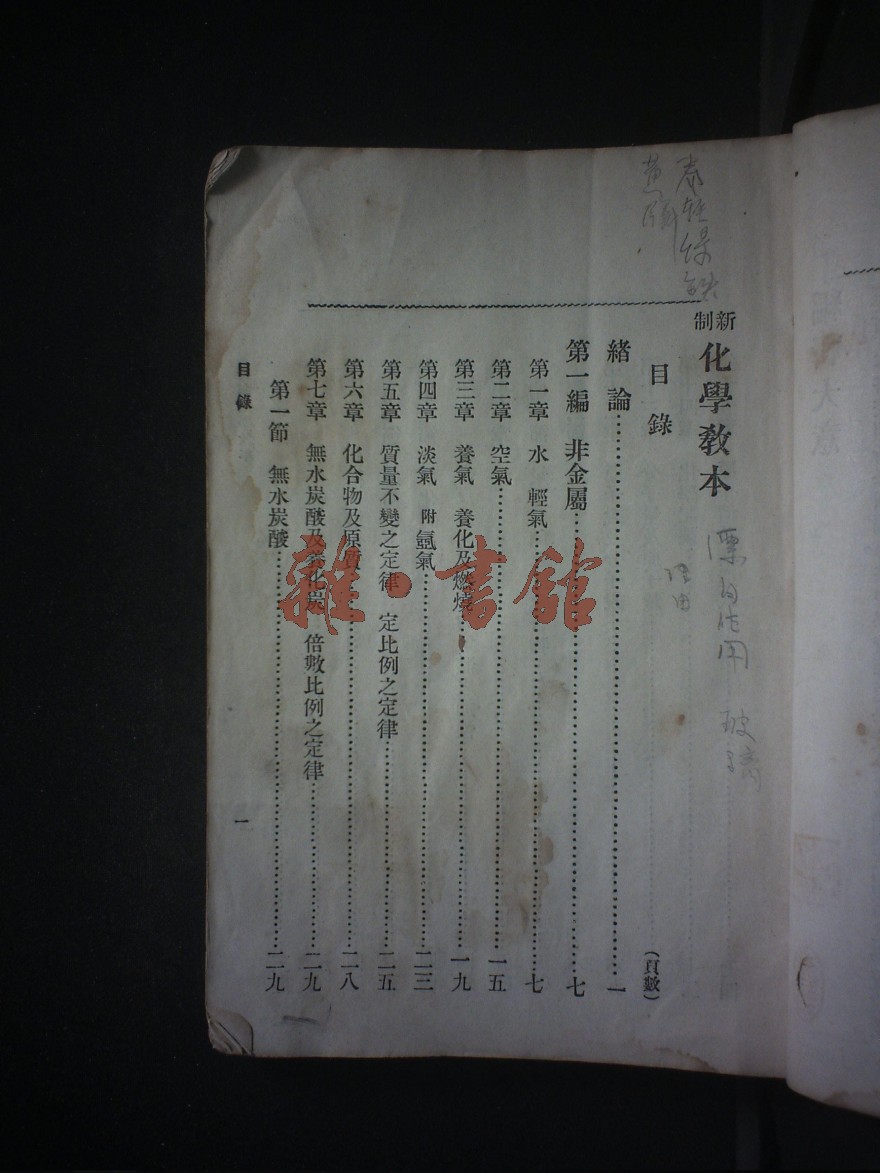 新制 化學教本
目錄 (頁數)
緒論 一
第一編 非金屬 七
第一章 水 輕氣 七
第二章 空氣 一五
第三章 養氣 養化及燃燒 一九
第四章 淡氣 附 氬氣 二三
第五章 質量不變之定律 定比例之定律 二五
第六章 化合物及原質 二八
第七章 無水炭酸及養化炭 倍數比例之定律 二九
第一節 無水炭酸 二九
目錄 一
漂白作用 玻璃
雜·書館